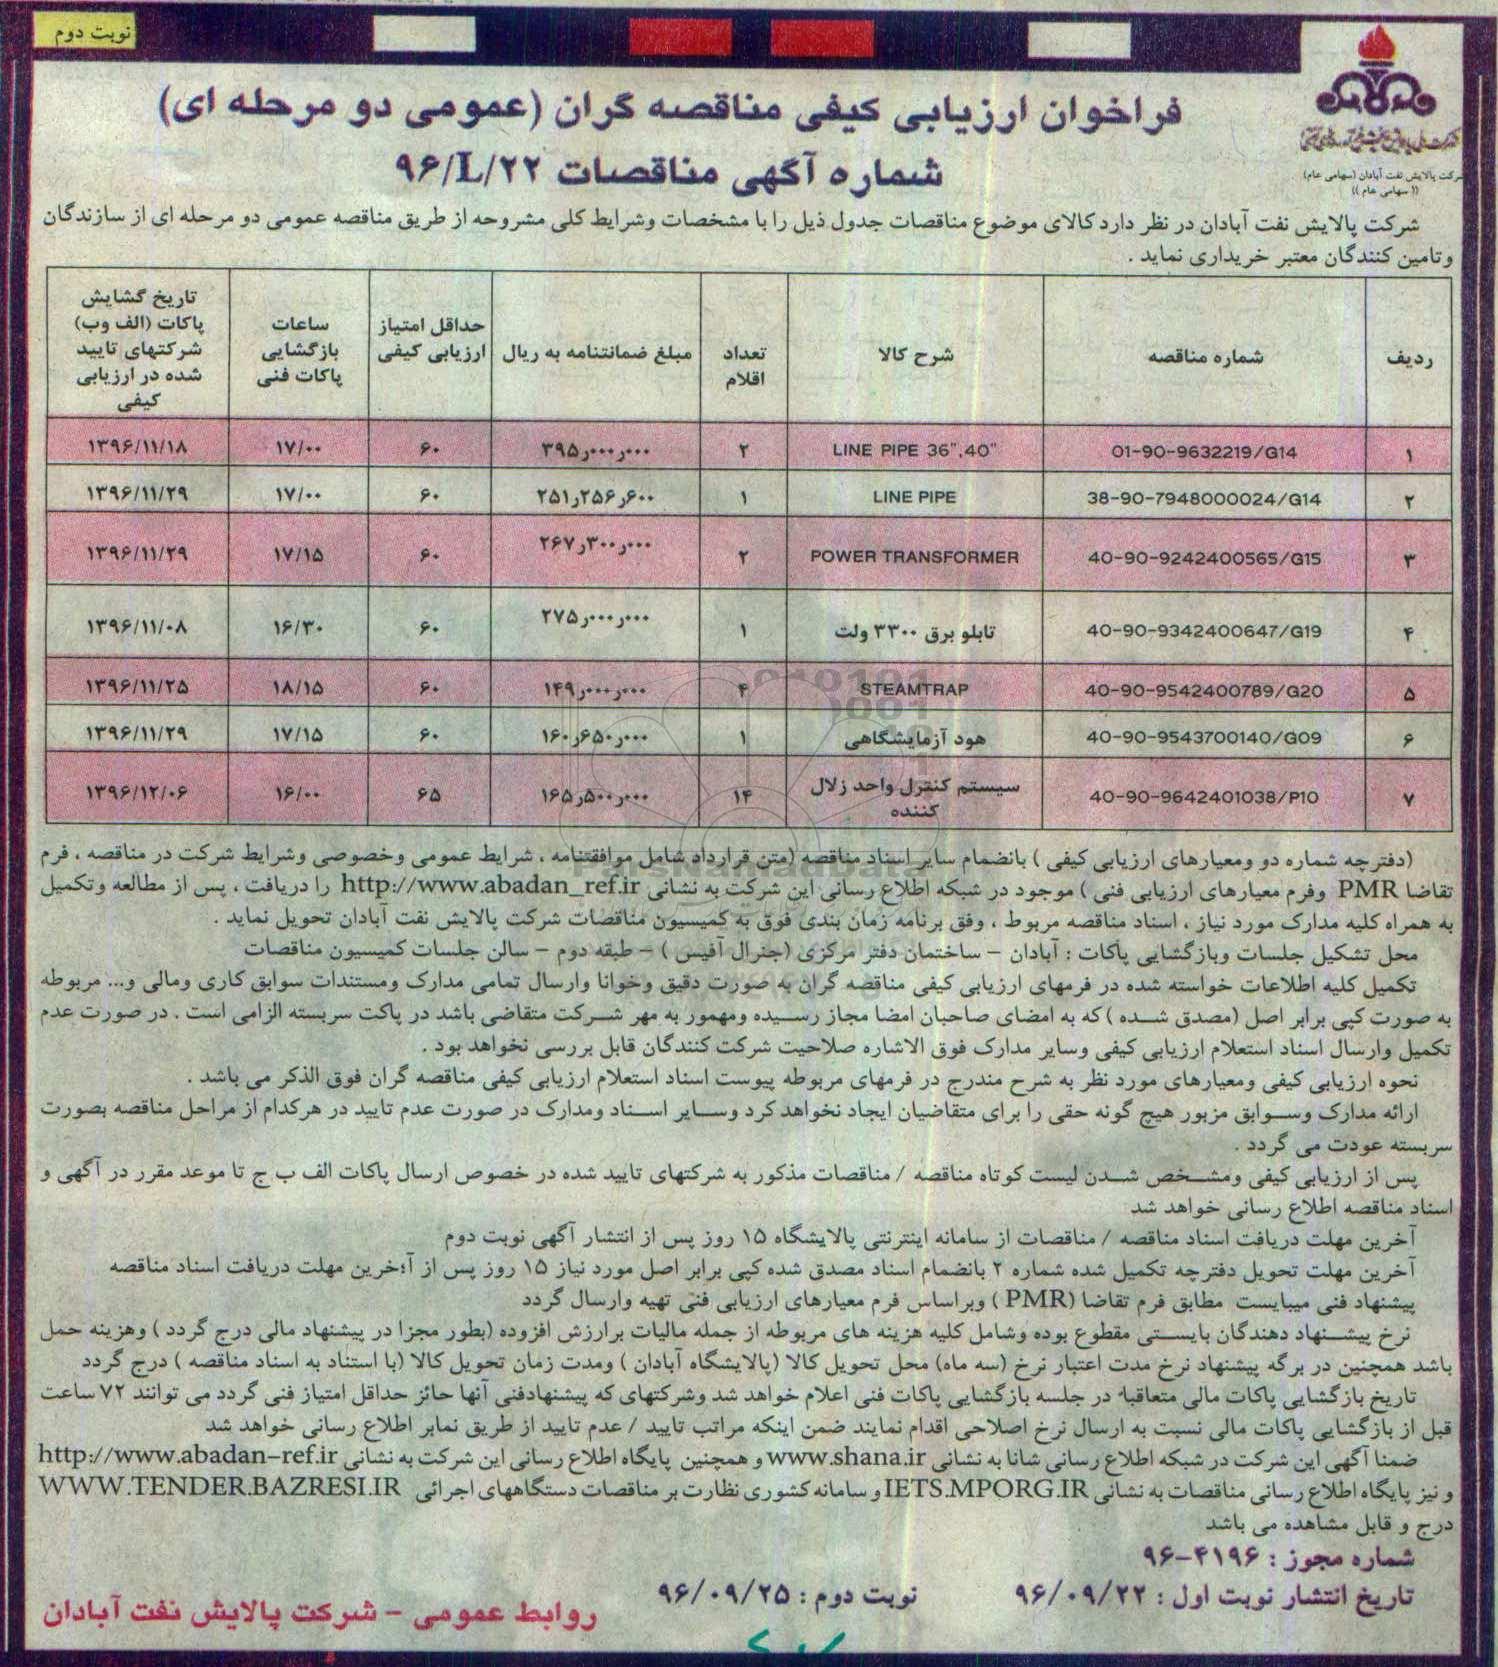 نوبت دوم
شرکت پالایش نفت آبادان (سهامی عام)
(( سهامی عام ))
فراخوان ارزیابی کیفی مناقصه گران (عمومی دو مرحله ای)
شماره آگهی مناقصات ۹۶/L/۲۲
شرکت پالایش نفت آبادان در نظر دارد کالای موضوع مناقصات جدول ذیل را با مشخصات وشرایط کلی مشروحه از طریق مناقصه عمومی دو مرحله ای از سازندگان
وتامین کنندگان معتبر خریداری نماید .
ردیف | شماره مناقصه | شرح کالا | تعداد اقلام | مبلغ ضمانتنامه به ریال | حداقل امتیاز ارزیابی کیفی | ساعات بازگشایی پاکات فنی | تاریخ گشایش پاکات (الف وب) شرکتهای تایید شده در ارزیابی کیفی
۱ | 01-90-9632219/G14 | LINE PIPE 36",40" | ۲ | ۳۹۵ر۰۰۰ر۰۰۰ | ۶۰ | ۱۷/۰۰ | ۱۳۹۶/۱۱/۱۸
۲ | 38-90-7948000024/G14 | LINE PIPE | ۱ | ۲۵۱ر۲۵۶ر۶۰۰ | ۶۰ | ۱۷/۰۰ | ۱۳۹۶/۱۱/۲۹
۳ | 40-90-9242400565/G15 | POWER TRANSFORMER | ۲ | ۲۶۷ر۳۰۰ر۰۰۰ | ۶۰ | ۱۷/۱۵ | ۱۳۹۶/۱۱/۲۹
۴ | 40-90-9342400647/G19 | تابلو برق ۳۳۰۰ ولت | ۱ | ۲۷۵ر۰۰۰ر۰۰۰ | ۶۰ | ۱۶/۳۰ | ۱۳۹۶/۱۱/۰۸
۵ | 40-90-9542400789/G20 | STEAMTRAP | ۴ | ۱۴۹ر۰۰۰ر۰۰۰ | ۶۰ | ۱۸/۱۵ | ۱۳۹۶/۱۱/۲۵
۶ | 40-90-9543700140/G09 | هود آزمایشگاهی | ۱ | ۱۶۰ر۶۵۰ر۰۰۰ | ۶۰ | ۱۷/۱۵ | ۱۳۹۶/۱۱/۲۹
۷ | 40-90-9642401038/P10 | سیستم کنترل واحد زلال کننده | ۱۴ | ۱۶۵ر۵۰۰ر۰۰۰ | ۶۵ | ۱۶/۰۰ | ۱۳۹۶/۱۲/۰۶
(دفترچه شماره دو ومعیارهای ارزیابی کیفی ) بانضمام سایر اسناد مناقصه (متن قرارداد شامل موافقتنامه ، شرایط عمومی وخصوصی وشرایط شرکت در مناقصه ، فرم
تقاضا PMR وفرم معیارهای ارزیابی فنی ) موجود در شبکه اطلاع رسانی این شرکت به نشانی http://www.abadan_ref.ir را دریافت ، پس از مطالعه وتکمیل
به همراه کلیه مدارک مورد نیاز ، اسناد مناقصه مربوط ، وفق برنامه زمان بندی فوق به کمیسیون مناقصات شرکت پالایش نفت آبادان تحویل نماید .
محل تشکیل جلسات وبازگشایی پاکات : آبادان – ساختمان دفتر مرکزی (جنرال آفیس ) – طبقه دوم – سالن جلسات کمیسیون مناقصات
تکمیل کلیه اطلاعات خواسته شده در فرمهای ارزیابی کیفی مناقصه گران به صورت دقیق وخوانا وارسال تمامی مدارک ومستندات سوابق کاری ومالی و... مربوطه
به صورت کپی برابر اصل (مصدق شده ) که به امضای صاحبان امضا مجاز رسیده ومهمور به مهر شرکت متقاضی باشد در پاکت سربسته الزامی است . در صورت عدم
تکمیل وارسال اسناد استعلام ارزیابی کیفی وسایر مدارک فوق الاشاره صلاحیت شرکت کنندگان قابل بررسی نخواهد بود .
نحوه ارزیابی کیفی ومعیارهای مورد نظر به شرح مندرج در فرمهای مربوطه پیوست اسناد استعلام ارزیابی کیفی مناقصه گران فوق الذکر می باشد .
ارائه مدارک وسوابق مزبور هیچ گونه حقی را برای متقاضیان ایجاد نخواهد کرد وسایر اسناد ومدارک در صورت عدم تایید در هرکدام از مراحل مناقصه بصورت
سربسته عودت می گردد .
پس از ارزیابی کیفی ومشخص شدن لیست کوتاه مناقصه / مناقصات مذکور به شرکتهای تایید شده در خصوص ارسال پاکات الف ب ج تا موعد مقرر در آگهی و
اسناد مناقصه اطلاع رسانی خواهد شد
آخرین مهلت دریافت اسناد مناقصه / مناقصات از سامانه اینترنتی پالایشگاه ۱۵ روز پس از انتشار آگهی نوبت دوم
آخرین مهلت تحویل دفترچه تکمیل شده شماره ۲ بانضمام اسناد مصدق شده کپی برابر اصل مورد نیاز ۱۵ روز پس از آخرین مهلت دریافت اسناد مناقصه
پیشنهاد فنی میبایست مطابق فرم تقاضا (PMR ) وبراساس فرم معیارهای ارزیابی فنی تهیه وارسال گردد
نرخ پیشنهاد دهندگان بایستی مقطوع بوده وشامل کلیه هزینه های مربوطه از جمله مالیات برارزش افزوده (بطور مجزا در پیشنهاد مالی درج گردد ) وهزینه حمل
باشد همچنین در برگه پیشنهاد نرخ مدت اعتبار نرخ (سه ماه) محل تحویل کالا (پالایشگاه آبادان ) ومدت زمان تحویل کالا (با استناد به اسناد مناقصه ) درج گردد
تاریخ بازگشایی پاکات مالی متعاقبا در جلسه بازگشایی پاکات فنی اعلام خواهد شد وشرکتهای که پیشنهادفنی آنها حائز حداقل امتیاز فنی گردد می توانند ۷۲ ساعت
قبل از بازگشایی پاکات مالی نسبت به ارسال نرخ اصلاحی اقدام نمایند ضمن اینکه مراتب تایید / عدم تایید از طریق نمابر اطلاع رسانی خواهد شد
ضمنا آگهی این شرکت در شبکه اطلاع رسانی شانا به نشانی www.shana.ir و همچنین پایگاه اطلاع رسانی این شرکت به نشانی http://www.abadan-ref.ir
و نیز پایگاه اطلاع رسانی مناقصات به نشانی IETS.MPORG.IR و سامانه کشوری نظارت بر مناقصات دستگاههای اجرائی WWW.TENDER.BAZRESI.IR
درج و قابل مشاهده می باشد
شماره مجوز : ۴۱۹۶-۹۶
تاریخ انتشار نوبت اول : ۹۶/۰۹/۲۲ نوبت دوم : ۹۶/۰۹/۲۵
روابط عمومی – شرکت پالایش نفت آبادان